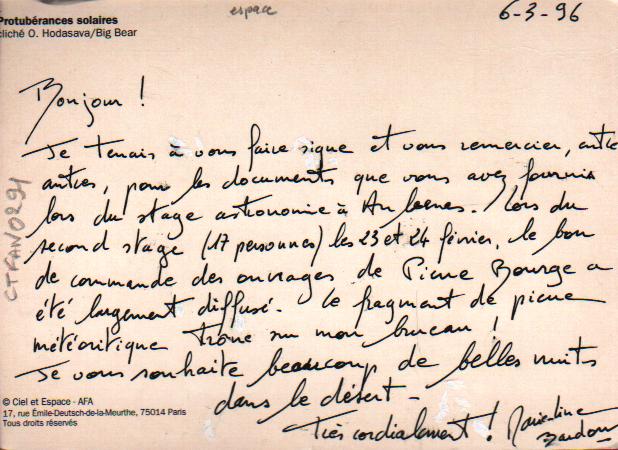 Protubérances solaires
cliché O. Hodasava/Big Bear
espace
6-3-96
Bonjour !
Je tenais à vous faire signe et vous remercier, entre
autres, pour les documents que vous avez fournis
lors du stage astronomie à Aubenas. Lors du
second stage (17 personnes) les 23 et 24 février, le bon
de commande des ouvrages de Pierre Bourge a
été largement diffusé. Le fragment de pierre
météoritique trône sur mon bureau !
Je vous souhaite beaucoup de belles nuits
dans le désert -
Très cordialement !
CTFAN/0291
© Ciel et Espace - AFA
17, rue Émile-Deutsch-de-la-Meurthe, 75014 Paris
Tous droits réservés